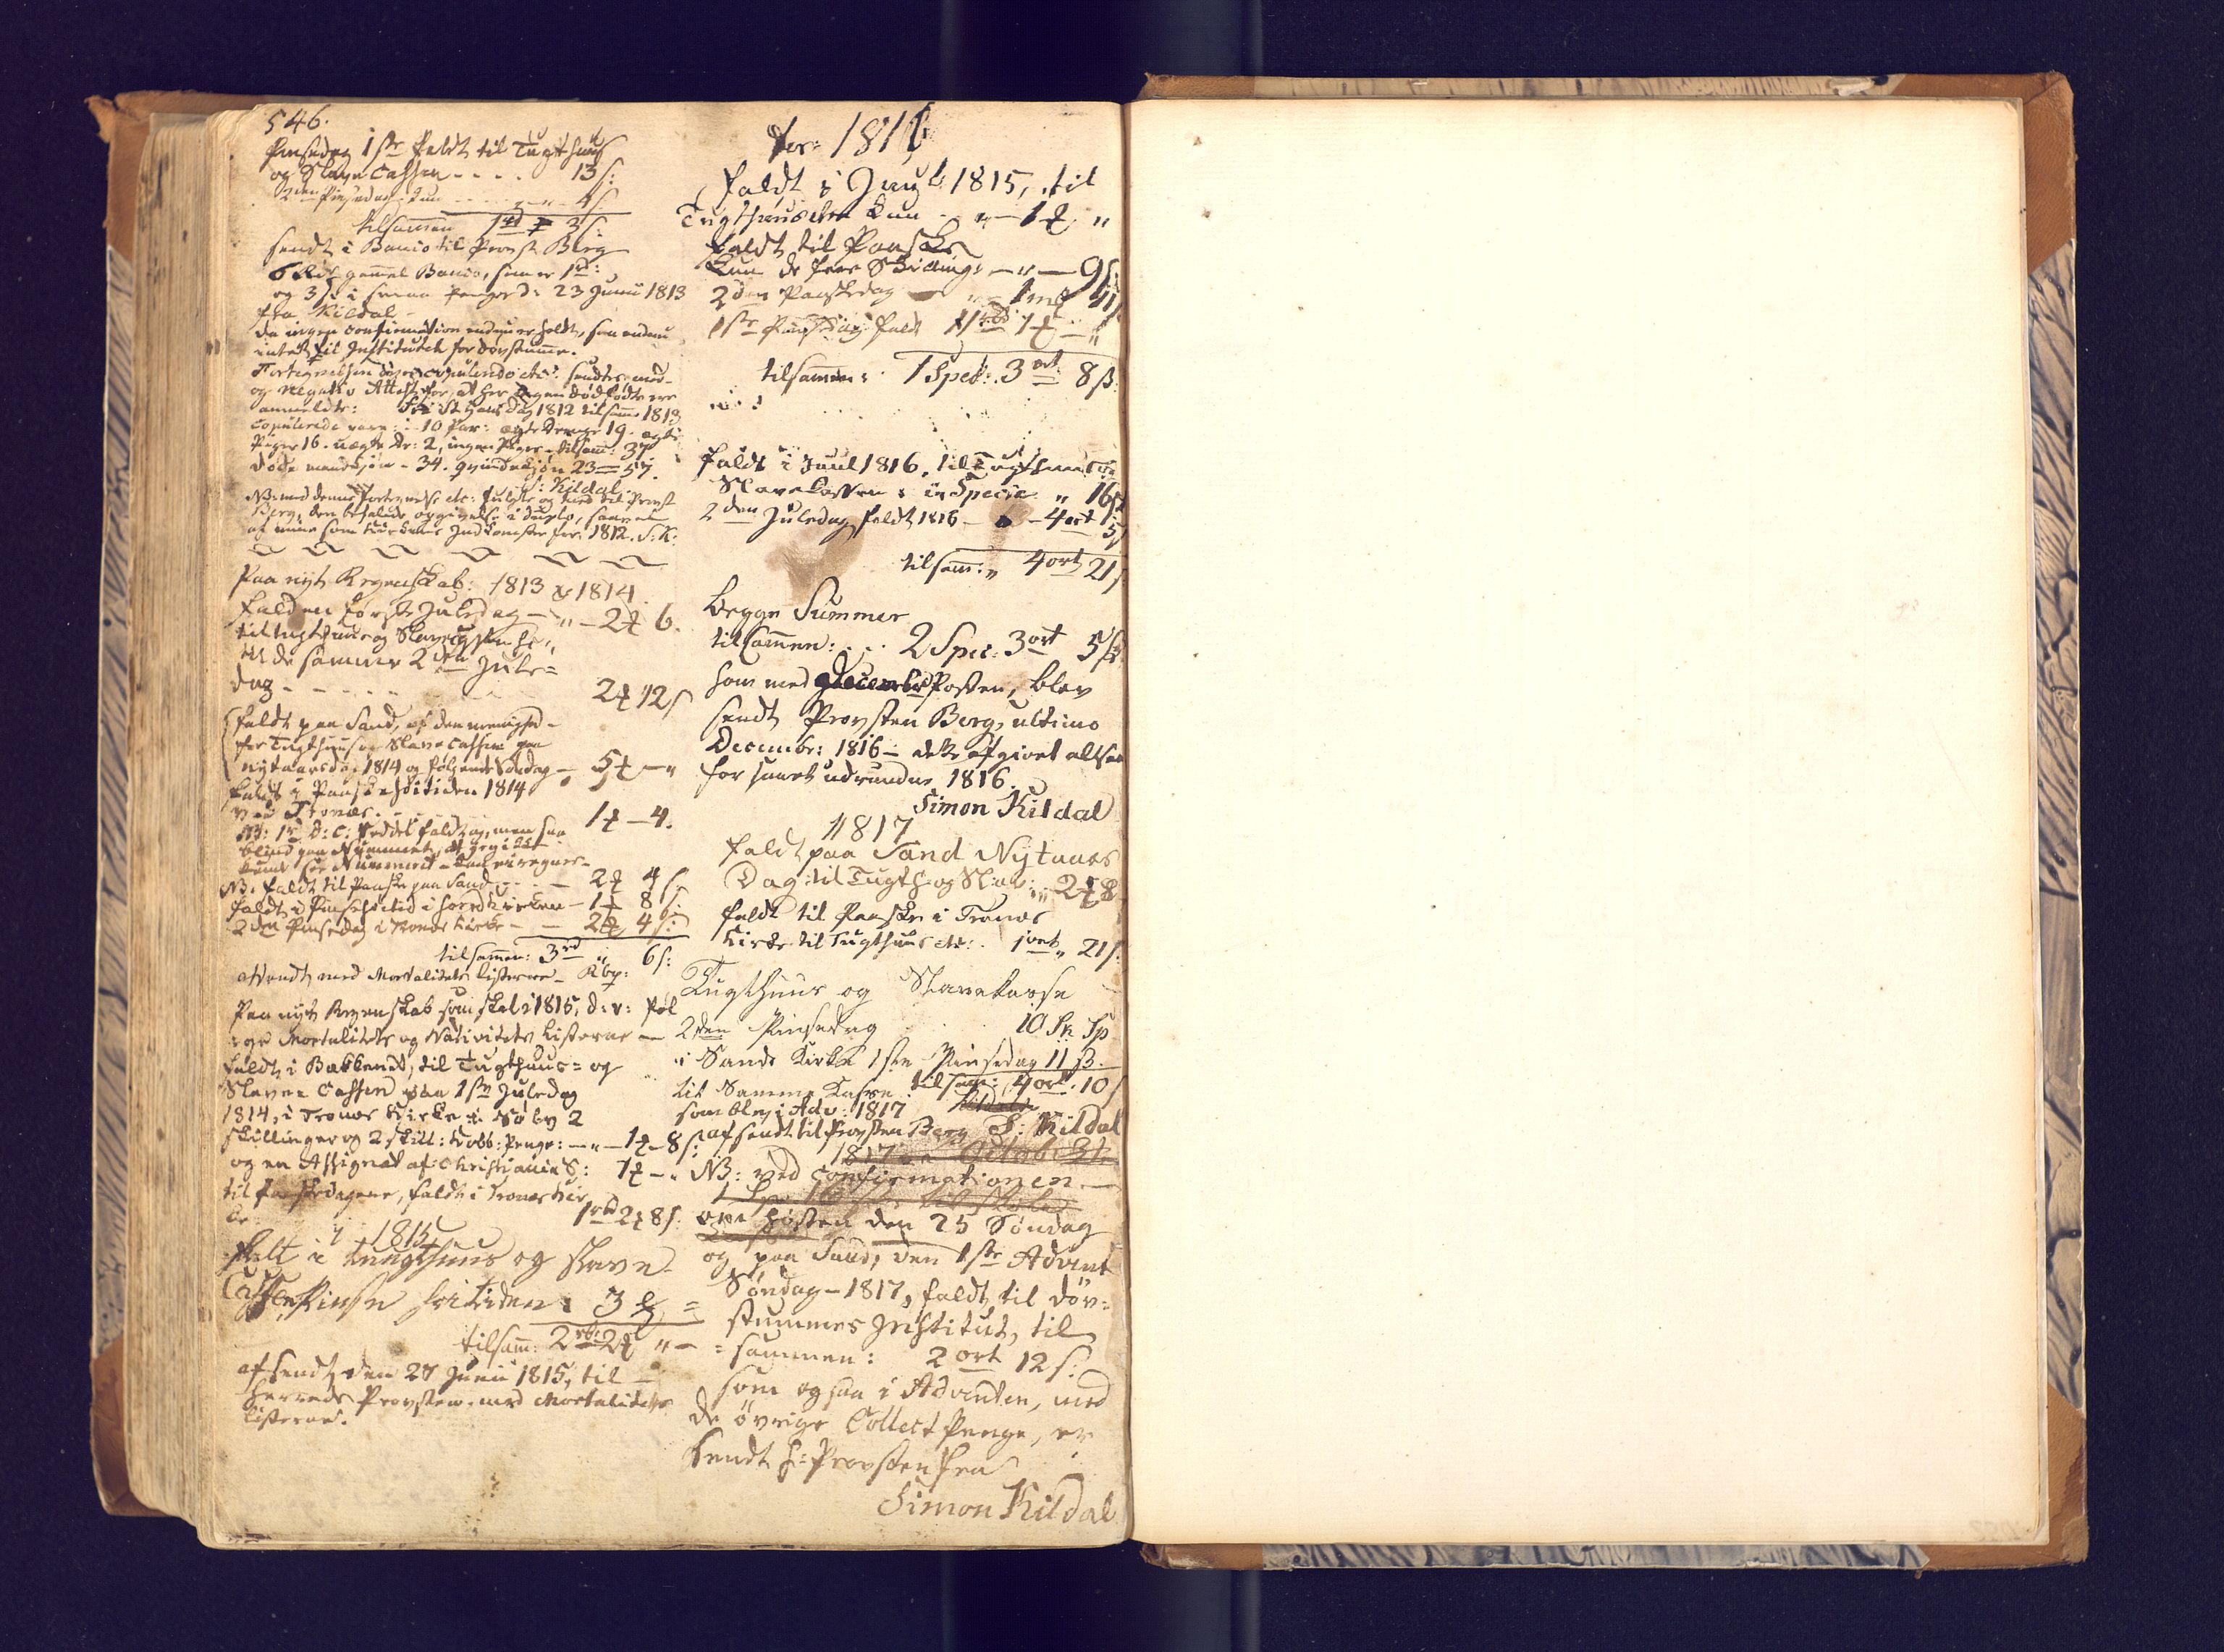 546.
Pinsedag 1ste faldt til Tugthuus
og Slave Cassen - - - - 13 s:
2den Pinsedag kun - - - - 4 s
tilsammen 1rd 3 s:
sendt i Banco til Provst Berg
6 Rdr gamel Banco, som er 1rd:
og 3 s: i smaa Penge d: 23 Junii 1813
fra Kildal -
da ingen Confirmation endnu er holdt, saa endnu
intet til Institutet for Døvstumme.
Fortegnelsen over copulerede etc: sendtes med
og negativ Attest for, at her ingen Dødfødte ere
anmeldte: fra St Hans Dag 1812 til samme 1813
Copulerede vare: 10 Par: ægte Drenge 19. ægte
Piger 16. uægte Dr: 2, ingen Piger - tilsam: 37
døde mandkjøn - 34. qvindekjøn 23 = 57.
S: Kildal.
NB: med denne Fortegnelse etc: fulgte og med til Provst
Berg, den befalede opgivelse i duplo, saavel
af mine som Kirkens Indkomster for 1812. S: K:
Paa nyt Regnskab: 1813 & 1814.
falden første Juledag - " - 2 6.
til Tugthuus og Slavecassen
til de samme 2den Jule=
dag - - - - 2 12 s
faldt paa Sand, af den menighed -
for Tugthuus og Slave Cassen paa
nytaarsdag 1814 og følgende Søndag - 5 - "
faldt i Paaskehøitiden 1814
ved Tronæs - - - 1 - 4.
NB: 1 D: C: Seddel faldt og, men saa
NB: faldt til Paaske paa Sand - - - 2 4 s
faldt i Pinsehøitid i Hovedkirken - 1 8 s:
2den Pinsedag i Tronæs Kirke - - 2 4 s:
tilsammen: 3rd " 6 s:
afsendt med Mortalitets Listerne - Kbp:
Paa nyt Regnskab som skal i 1815, d: v: føl
ge Mortalitets og Nativitets Listerne -
faldt i Bækkenet, til Tugthuus= og
Slaverie Cassen paa 1ste Juledag
1814, i Tronæs Kirke i Sølv 2
skillinger og 2 skill: Kobb: Penge: - " - 1 - 8 s:
og en Assignat af Christiania S: 1 - "
til Paaskedagene, faldt i Tronæs Kir
ke: 1rbd 2 8 s:
1815
faldt i Tugthuus og Slave
Cassen Pinse høitiden: 3 =
tilsam: 2rb: 2 " -
afsendt den 27 Junii 1815, til -
Herreds Provsten, med Mortalitets
Listerne.
for: 1816
faldt i Juul 1815, til
Tugthuuset kun - " - 1 "
faldt til Paaske
kun de faae Skilling: - " - 9 s
2den Paaskedag - " - 1 m 11
1ste Pinsedag faldt 1 - "
tilsammen: 1 Spec: 3 ort 8 s:
faldt i Juul 1816, til Tugthuus og
Slave Cassen: in Specie " 16 s
2den Juledag faldt 1816 - - 4 ort 5 s
tilsam: " 4 ort 21 s:
begge Summer
tilsammen: . . . 2 Spec: 3 ort 5 s
som med Posten, blev
sendt Provsten Berg, ultimo
Decembr: 1816 - dette afgivet altsaa
for Aaret udrundne 1816.
Simon Kildal
1817
faldt paa Sand Nytaars
Dag til Tugth: og Slave: " 2 8
faldt til Paaske i Tronæs
Kirke til Tugthuus etc: 1 ort " 21 s:
Tugthuus og Slavekasse
2den Pinsedag . . . 10 Sk Sp
i Sands Kirke 1ste Pinsedag 11 s.
til Samme Kasse tilsam: 4 ort. 10 s
som blev i Adv: 1817
afsendt til Provsten Berg S: Kildal
NB: ved Confirmationen -
den 25 Søndag
og paa Sand, den 1ste Advent
Søndag - 1817, faldt til Døv=
stummes Institut, til
=sammen: 2 ort 12 s:
som og saa i Adventen, med
de øvrige Collect Penge, er
sendt H: Provsten fra
Simon Kildal